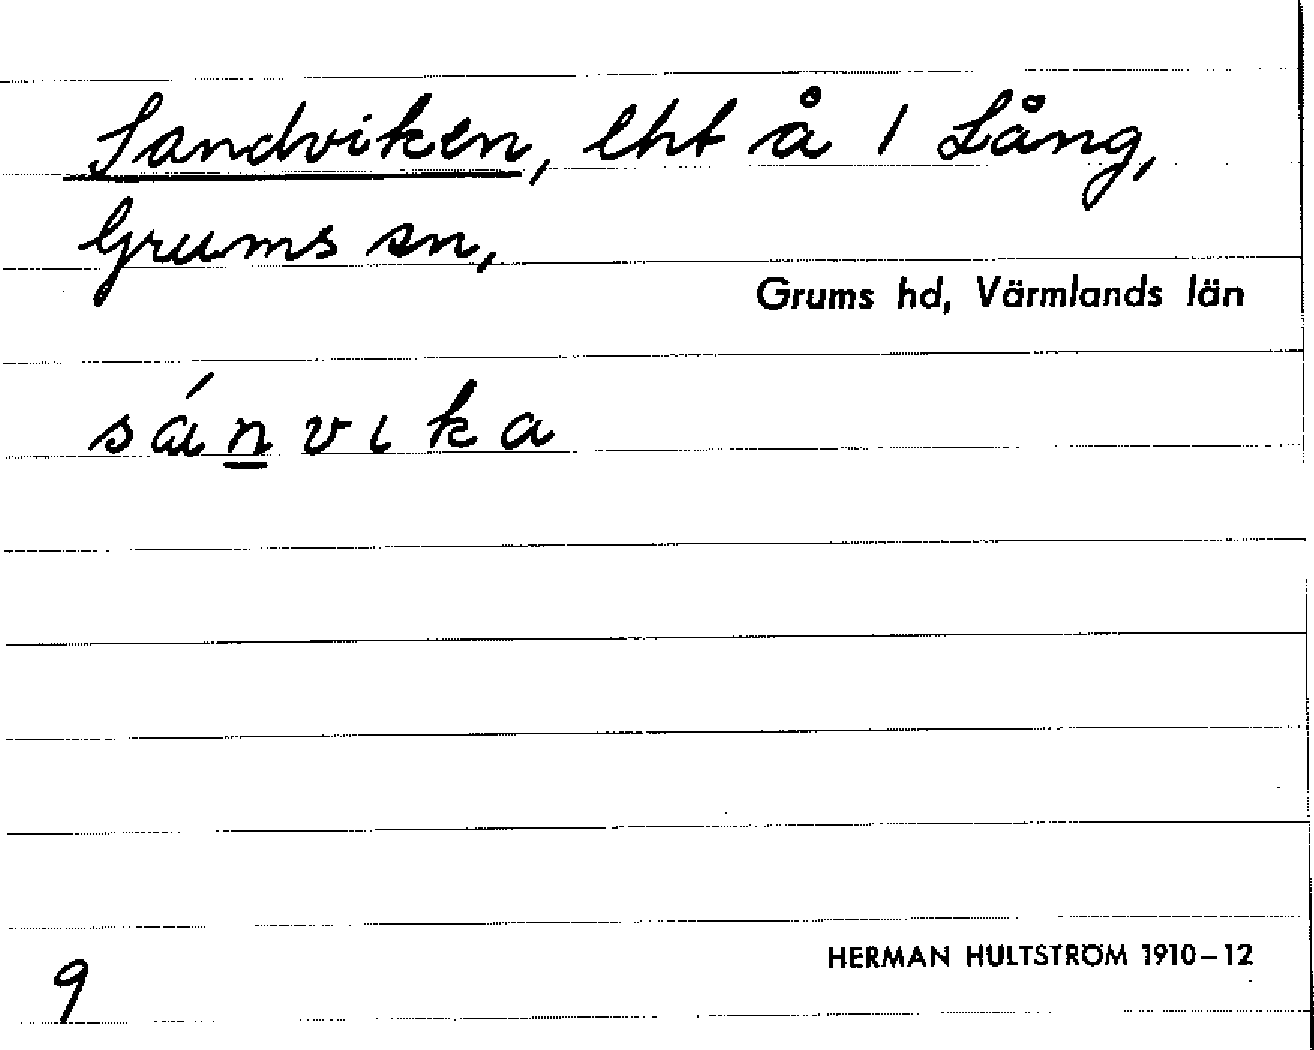 Sandviken, lht å 1 Lång,
Grums sn,
Grums hd, Värmlands län
sánvika
HERMAN HULTSTRÖM 1910–12
9